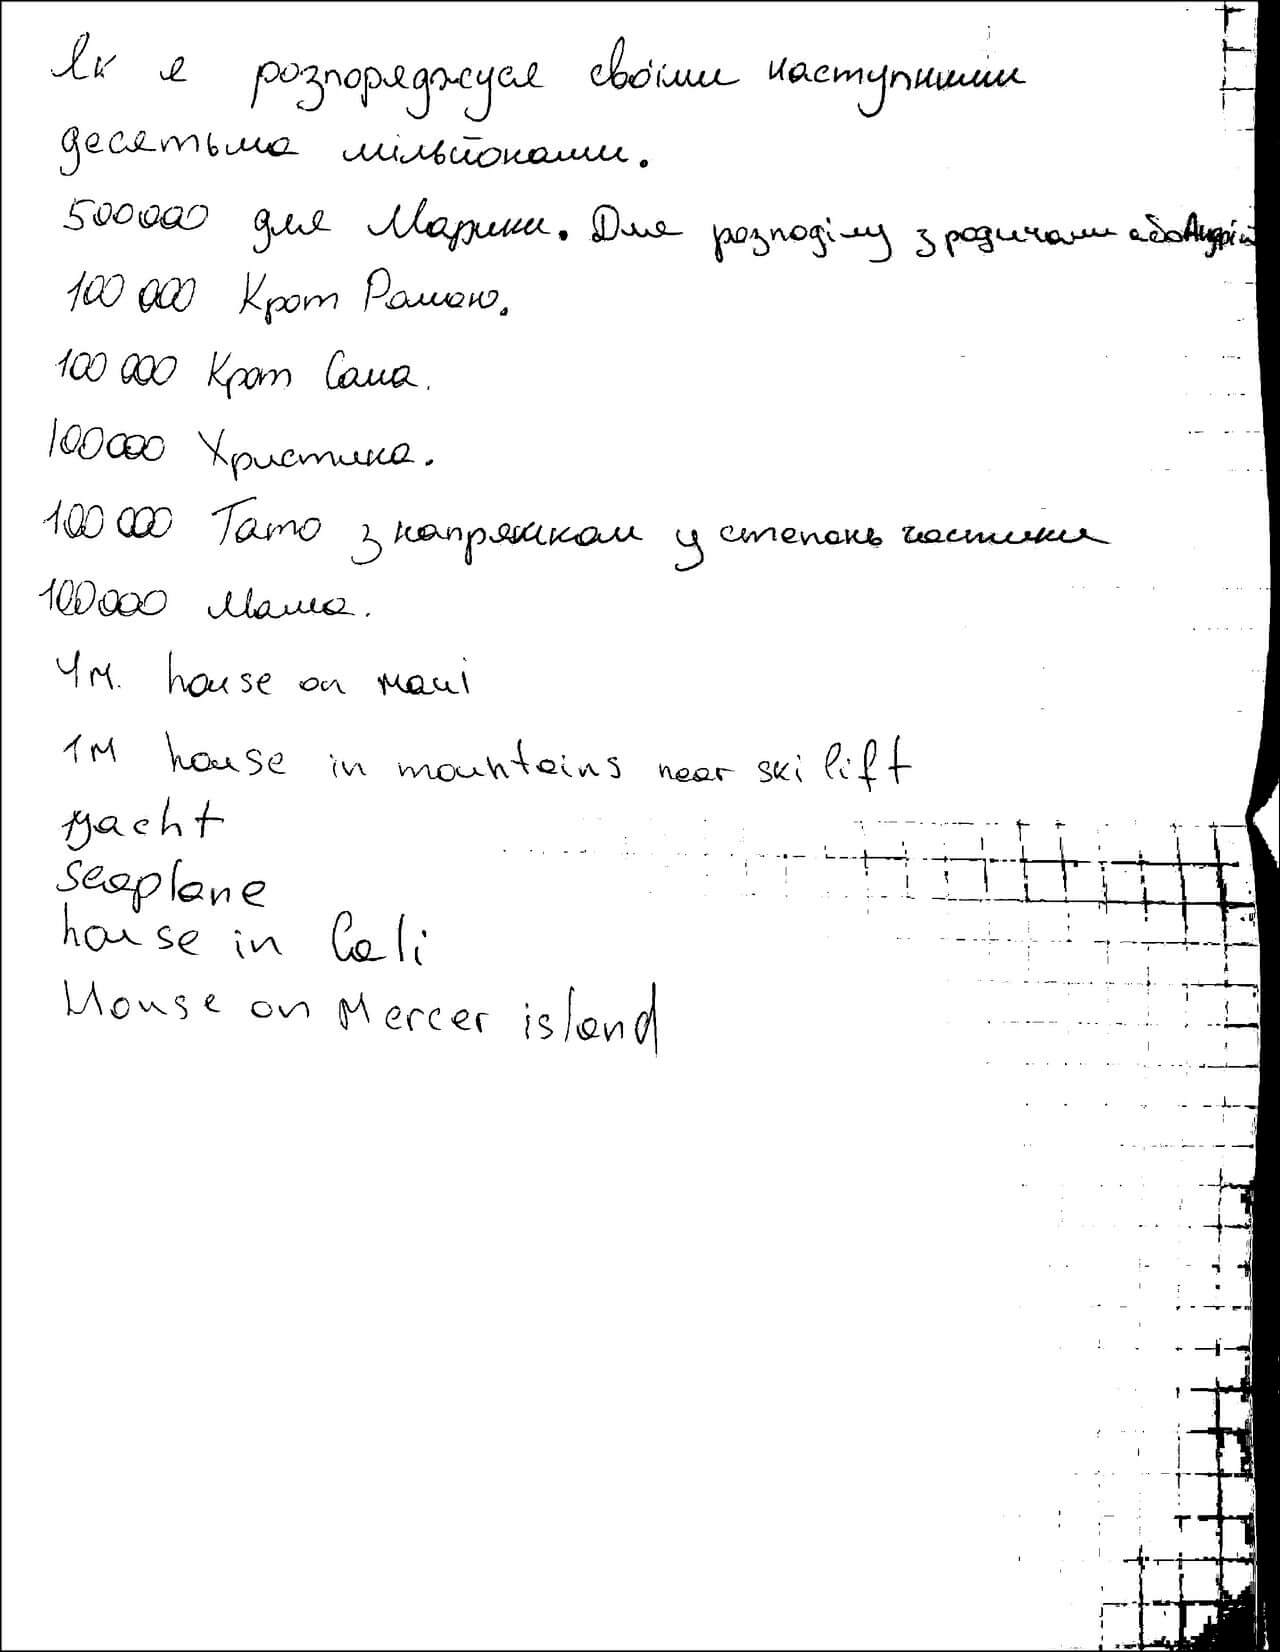 Як я розпоряджуся своїми наступними
десятьма мільйонами.
500000 для Марини. Для розподілу з родичами або Андрій
100 000 Крот Рамаю.
100 000 Крот Саша.
100000 Христина.
100 000 Тато з напряжком у степень частини
100000 Мама.
4м. house on maui
1м house in mountains near ski lift
yacht
seaplane
house in Cali
House on Mercer island